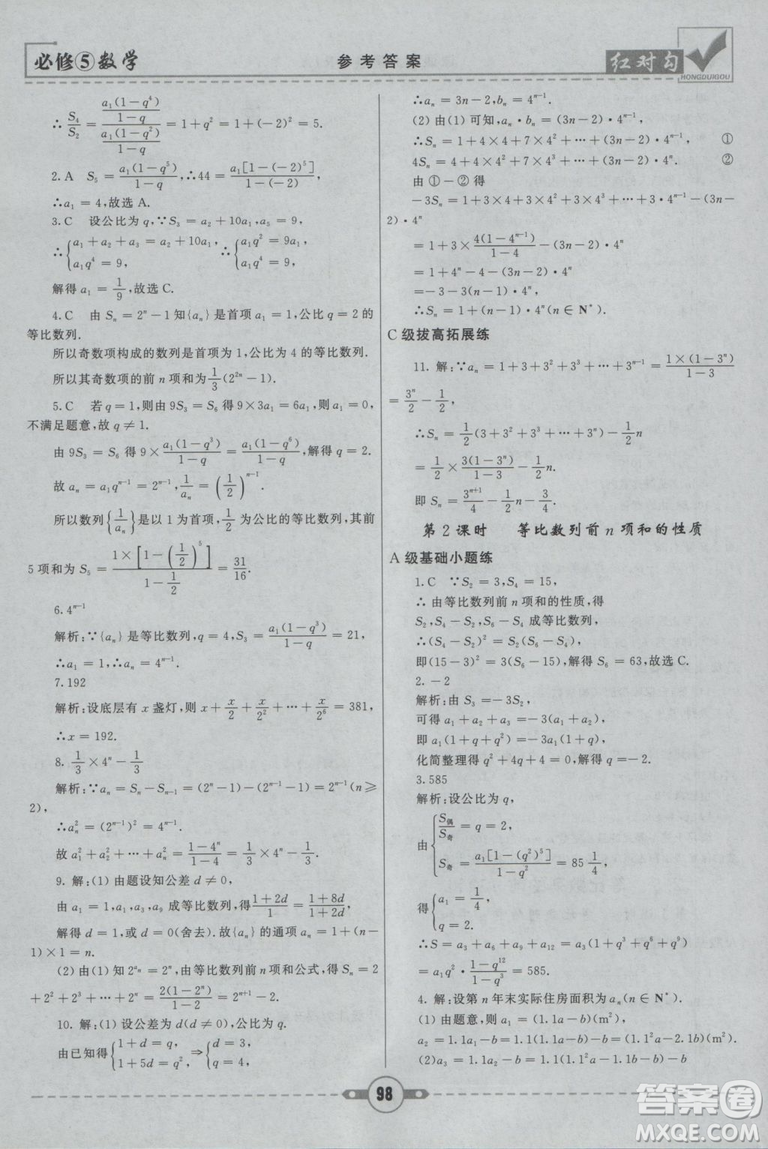 必修⑤数学
参考答案
红对勾
HONGDUIGOU
∴S₄/S₂ = [a₁(1-q⁴)/(1-q)]/[a₁(1-q²)/(1-q)] = 1+q² = 1+(-2)² = 5.
2.A S₅ = a₁(1-q⁵)/(1-q), ∴44 = a₁[1-(-2)⁵]/(1-(-2)),
∴a₁ = 4,故选A.
3.C 设公比为q,∵S₃ = a₂+10a₁,a₅ = 9,
∴{a₁+a₂+a₃ = a₂+10a₁, a₁q⁴ = 9, ∴{a₁q² = 9a₁, a₁q⁴ = 9,
解得a₁ = 1/9,故选C.
4.C 由Sₙ = 2ⁿ-1知{aₙ}是首项a₁ = 1,公比q = 2的
等比数列.
所以奇数项构成的数列是首项为1,公比为4的等比数列.
所以其奇数项的前n项和为1/3(2²ⁿ-1).
5.C 若q = 1,则由9S₃ = S₆得9×3a₁ = 6a₁,则a₁ = 0,
不满足题意,故q ≠ 1.
由9S₃ = S₆得9×a₁(1-q³)/(1-q) = a₁(1-q⁶)/(1-q),解得q = 2.
故aₙ = a₁qⁿ⁻¹ = 2ⁿ⁻¹,1/aₙ = (1/2)ⁿ⁻¹.
所以数列{1/aₙ}是以1为首项,1/2为公比的等比数列,其前
5项和为S₅ = 1×[1-(1/2)⁵]/(1-1/2) = 31/16.
6.4ⁿ⁻¹
解析:∵{aₙ}是等比数列,q = 4,S₃ = a₁(1-q³)/(1-q) = 21,
∴a₁ = 1,∴aₙ = 4ⁿ⁻¹.
7.192
解析:设底层有x盏灯,则x+x/2+x/2²+…+x/2⁶ = 381,
∴x = 192.
8.1/3×4ⁿ-1/3
解析:∵aₙ = Sₙ-Sₙ₋₁ = (2ⁿ-1)-(2ⁿ⁻¹-1) = 2ⁿ⁻¹(n≥
2),
∴aₙ² = (2ⁿ⁻¹)² = 4ⁿ⁻¹.
故a₁²+a₂²+…+aₙ² = (1-4ⁿ)/(1-4) = 1/3×4ⁿ-1/3.
9.解:(1)由题设知公差d ≠ 0,
由a₁ = 1,a₁,a₃,a₉成等比数列,得(1+2d)/1 = (1+8d)/(1+2d),
解得d = 1或d = 0(舍去).故{aₙ}的通项aₙ = 1+(n-
1)×1 = n.
(2)由(1)知2^aₙ = 2ⁿ,由等比数列前n项和公式,得Sₙ = 2
+2²+2³+…+2ⁿ = 2(1-2ⁿ)/(1-2) = 2ⁿ⁺¹-2.
10.解:(1)设公差为d(d≠0),公比为q.
由已知得{1+d = q, 1+5d = q², ⇒{d = 3, q = 4,
∴aₙ = 3n-2,bₙ = 4ⁿ⁻¹.
(2)由(1)可知,aₙ·bₙ = (3n-2)·4ⁿ⁻¹
∴Sₙ = 1+4×4+7×4²+…+(3n-2)·4ⁿ⁻¹, ①
4Sₙ = 4+4×4²+7×4³+…+(3n-2)·4ⁿ. ②
由①-②得
-3Sₙ = 1+3×4+3×4²+3×4³+…+3×4ⁿ⁻¹-(3n-
2)·4ⁿ
=1+3×4(1-4ⁿ⁻¹)/(1-4)-(3n-2)·4ⁿ
=1+4ⁿ-4-(3n-2)·4ⁿ
=-3-(3n-3)·4ⁿ.
∴Sₙ = 1+(n-1)·4ⁿ(n∈N*).
C级拔高拓展练
11.解:∵aₙ = 1+3+3²+…+3ⁿ⁻¹ = 1×(1-3ⁿ)/(1-3)
=3ⁿ/2-1/2,
∴Sₙ = 1/2(3+3²+3³+…+3ⁿ)-1/2n
=1/2×3(1-3ⁿ)/(1-3)-1/2n.
即Sₙ = 3ⁿ⁺¹/4-1/2n-3/4.
第2课时 等比数列前n项和的性质
A级基础小题练
1.C ∵S₂ = 3,S₄ = 15,
∴由等比数列前n项和的性质,得
S₂,S₄-S₂,S₆-S₄成等比数列,
∴(S₄-S₂)² = S₂(S₆-S₄),
即(15-3)² = 3(S₆-15),解得S₆ = 63,故选C.
2.-2
解析:由S₃ = -3S₂,
可得a₁+a₂+a₃ = -3(a₁+a₂),
即a₁(1+q+q²) = -3a₁(1+q),
化简整理得q²+4q+4 = 0,解得q = -2.
3.585
解析:设公比为q,
由{S偶/S奇 = q = 2, S奇 = a₁[1-(q²)⁵]/(1-q²) = 85 1/4,
得{a₁ = 1/4, q = 2.
∴S = a₃+a₆+a₉+a₁₂ = a₃·(1-q¹²)/(1-q³) = 585.
4.解:设第n年末实际住房面积为aₙ(n∈N*).
(1)由题意,得a₁ = (1.1a-b)(m²),
a₂ = 1.1a₁-b = 1.1(1.1a-b)-b = (1.21a-2.1b)(m²).
98
答案圈
MXQE.COM